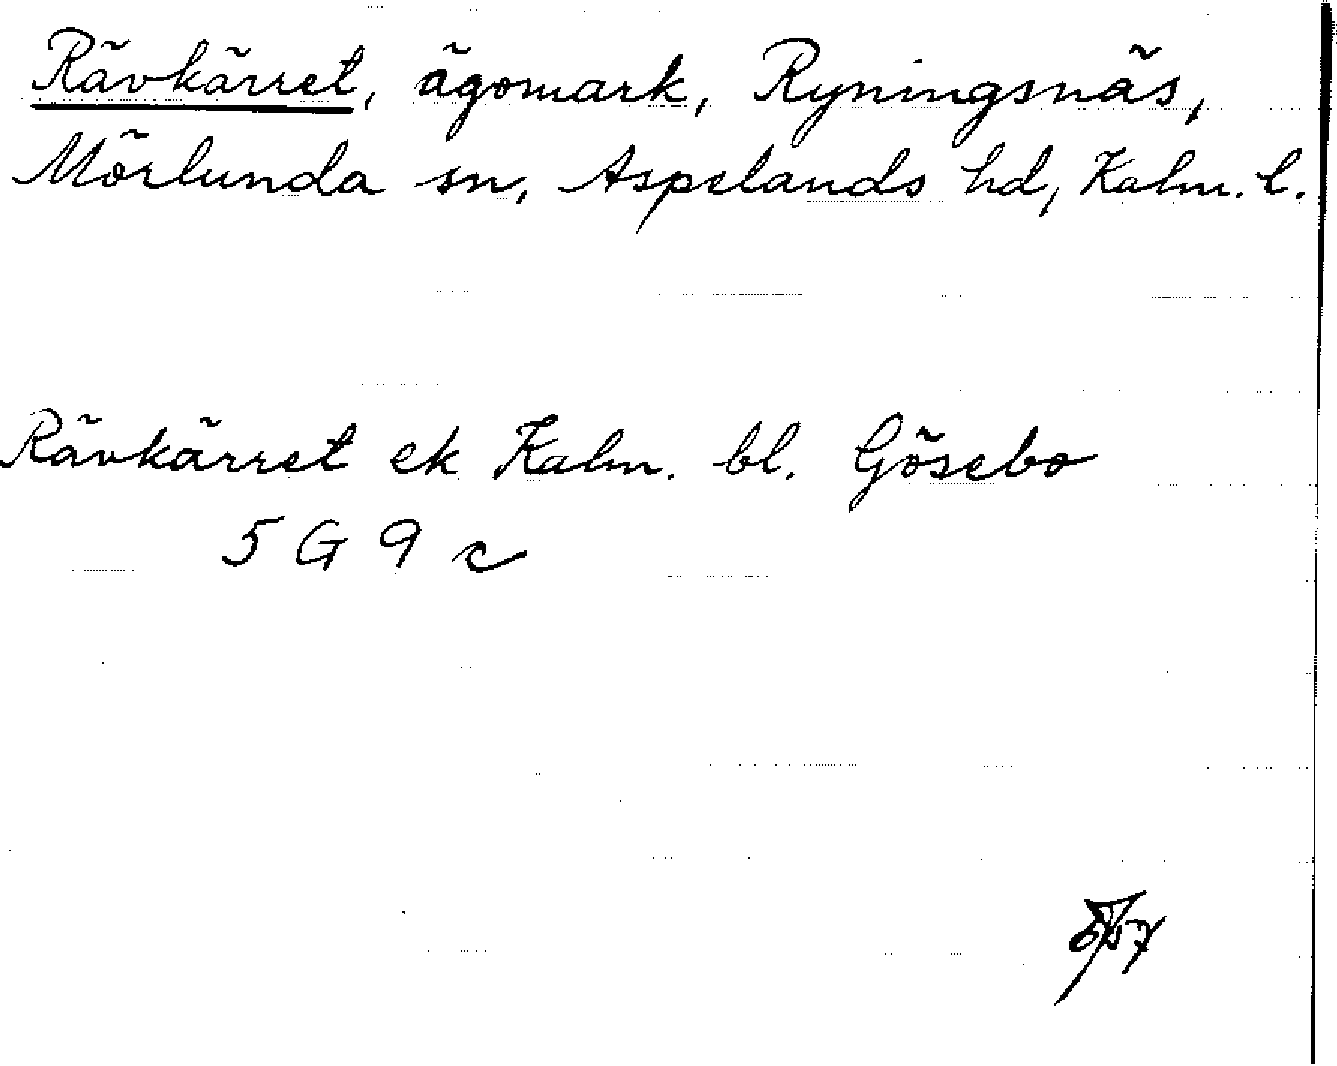 Rävkärret, ägomark, Ryningsnäs,
Mörlunda sn, Aspelands hd, Kalm. l.
Rävkärret ek Kalm. bl. Gösebo
5 G 9 c